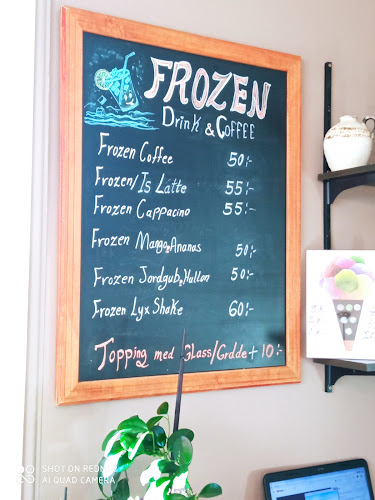 FROZEN
Drink & Coffee
Frozen Coffee 50:-
Frozen/Is Latte 55:-
Frozen Cappacino 55:-
Frozen Mango&Ananas 50:-
Frozen Jordgub&Hallon 50:-
Frozen Lyx Shake 60:-
Topping med Glass/Grdde + 10:-
SHOT ON REDMI
AI QUAD CAMERA